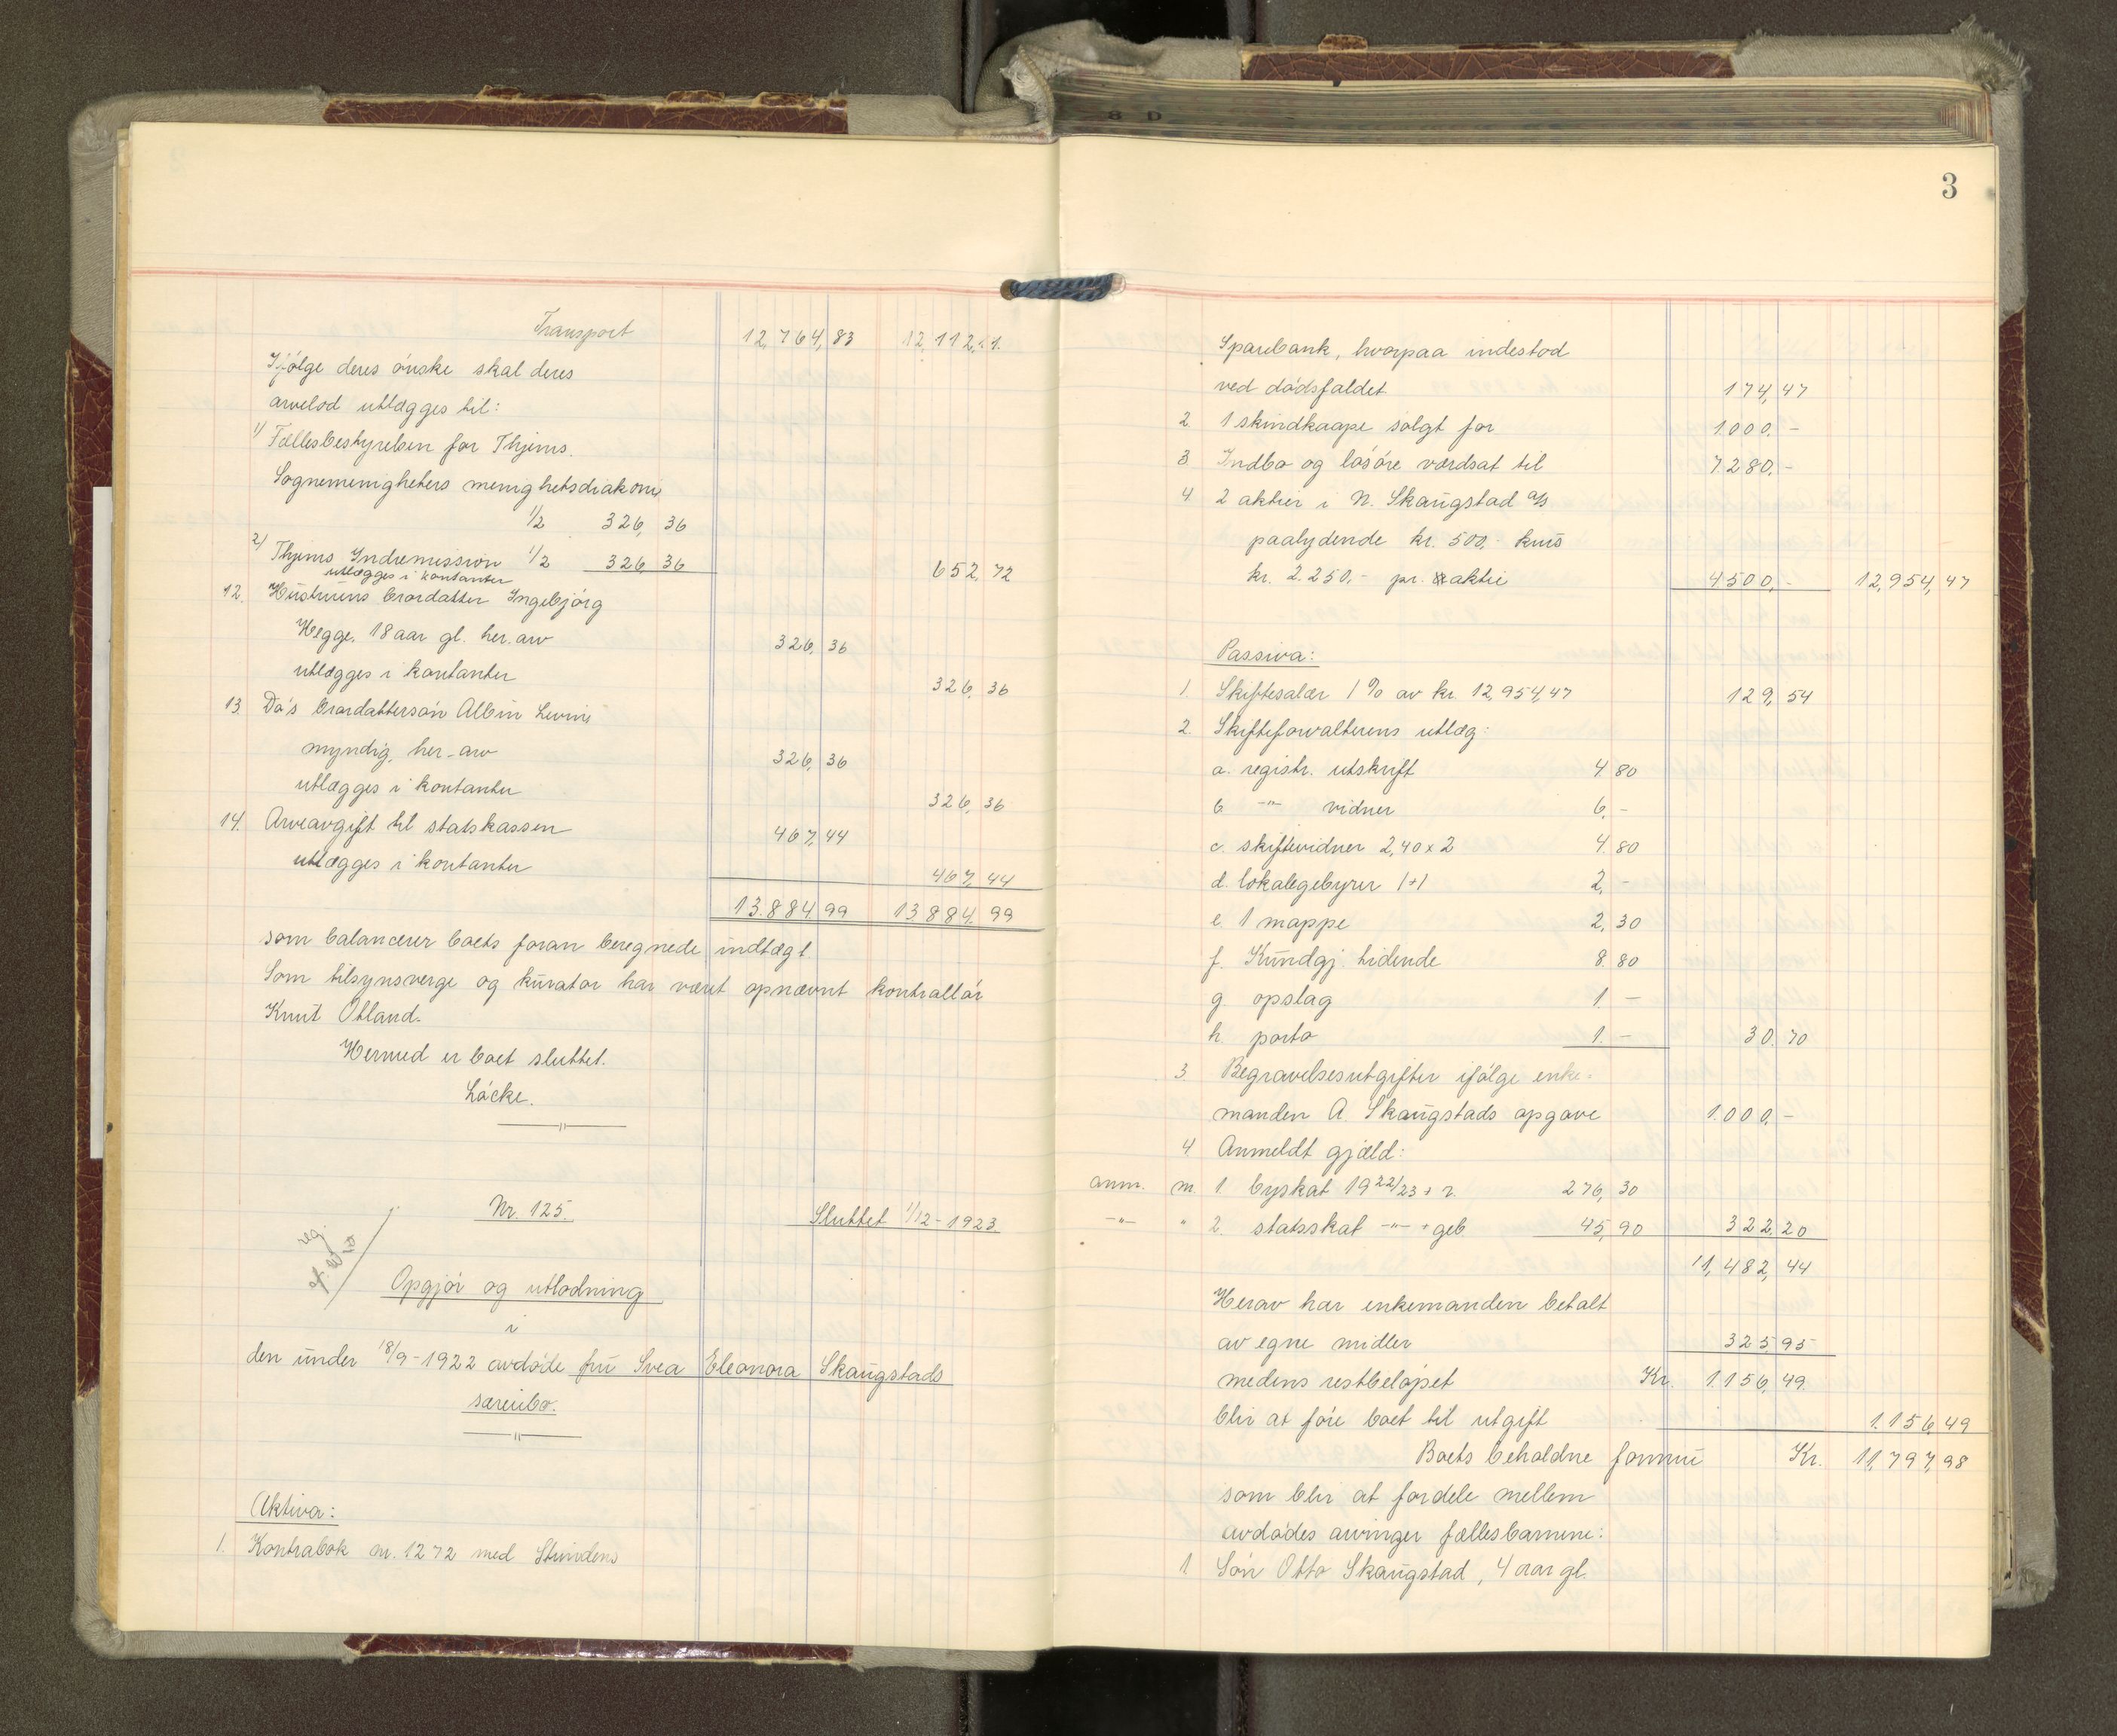 Transport 12,764,83 12,112,11.
Ifølge deres ønske skal deres
arvelod utlægges til:
1) Fællesbestyrelsen for Thjems.
Sognemenigheters menighetsdiakoni
1/2 326,36
2) Thjems Indremission 1/2 326,36 652,72
utlægges i kontanter
12. Hustruens brordatter Ingebjørg
Hegge, 18 aar gl. her. arv 326,36
utlægges i kontanter 326,36
13. Do's brordattersøn Albin Levine
myndig, her. arv 326,36
utlægges i kontanter 326,36
14. Arveavgift til statskassen 467,44
utlægges i kontanter 467,44
13.884,99 13.884,99
som balancerer boets foran beregnede indtægt.
Som tilsynsverge og kurator har været opnævnt kontrollør
Knut Otland.
Hermed er boet sluttet.
Löcke.
Nr. 125. Sluttet 1/12-1923
reg.
Opgjør og utlodning
i
den under 18/9-1922 avdøde fru Svea Eleonora Skaugstads
særeiebo.
Aktiva:
1. Kontrabok nr. 1272 med Strindens
3
Sparebank, hvorpaa indestod
ved dødsfaldet 174,47
2. 1 skindkaape solgt for 1.000,-
3 Indbo og løsøre værdsat til 7.280,-
4 2 aktier i N. Skaugstad a/s
paalydende kr. 500,- kurs
kr. 2.250,- pr. aktie 4500,- 12,954,47
Passiva:
1. Skiftesalær 1% av kr. 12,954,47 129,54
2. Skifteforvalterens utlæg:
a. registr. utskrift 4.80
b -"- vidner 6,-
c. skiftevidner 2,40 x 2 4.80
d. lokalegebyrer 1+1 2,-
e. 1 mappe 2,30
f. Kundgj. tidende 8.80
g. opslag 1.-
h. porto 1.- 30.70
3. Begravelsesutgifter ifølge enke-
manden A. Skaugstads opgave 1.000,-
4. Anmeldt gjæld:
anm. nr. 1. byskat 1922/23 + r. 276,30
-"- " 2. statsskat -"- + geb 45,90 322,20
11,482,44
Herav har enkemanden betalt
av egne midler 325,95
medens restbeløpet Kr. 1.156,49
blir at føre boet til utgift 1.156,49
Boets beholdne formue Kr. 11,797,98
som blir at fordele mellem
avdødes arvinger fællesbarnene:
1. Søn Otto Skaugstad, 4 aar gl.